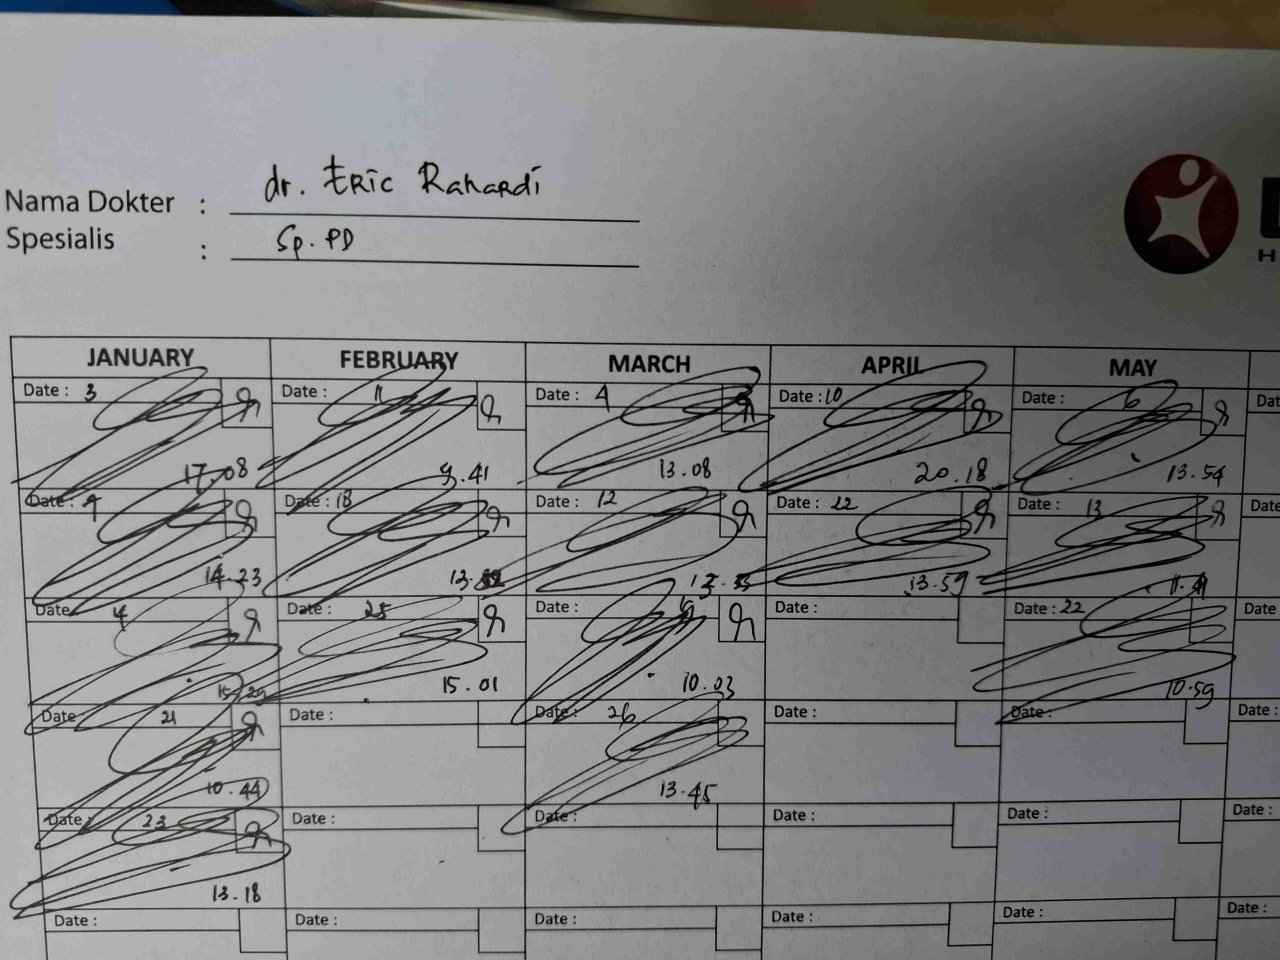 Nama Dokter : dr. Eric Rahardi
Spesialis : Sp. PD
H
JANUARY FEBRUARY MARCH APRIL MAY
Date : 3 Date : 11 Date : 4 Date : 10 Date : 6 Dat
17.08 9.41 13.08 20.18 13.54
Date : 9 Date : 18 Date : 12 Date : 22 Date : 13 Date
14.23 13. 13. 13.59
Date Date : 25 Date : Date : Date : 22 Date
15.01 10.03 10.59
Date 21 Date : Date : 26 Date : Date : Date :
10.44 13.45
Date : 23 Date : Date : Date : Date : Date :
13.18
Date : Date : Date : Date : Date : Date :